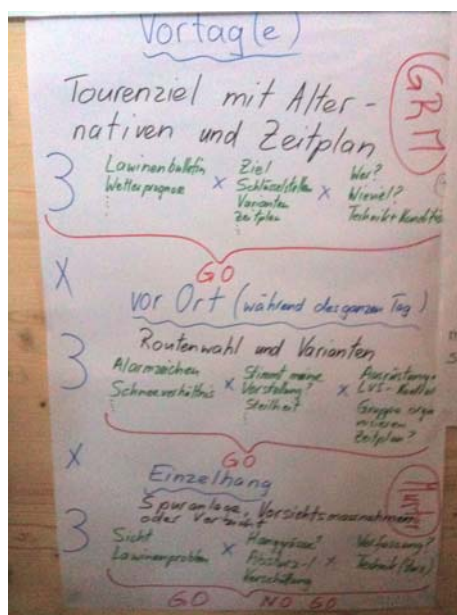 Vortag(e)
Tourenziel mit Alter-
nativen und Zeitplan
GRM
3
Lawinenbulletin
Wetterprognose
x
Ziel
Schlüsselstellen
Varianten
Zeitplan
x
Wer?
Wieviel?
Technik + Kondition
GO
x
vor Ort (während des ganzen Tag)
3
Routenwahl und Varianten
Alarmzeichen
Schneeverhältnis
x
Stimmt meine
Vorstellung?
Steilheit
x
Ausrüstung
LVS-Kontrolle
Gruppe orga
nisieren
Zeitplan?
GO
x
Einzelhang
Munter
3
Spuranlage, Vorsichtsmassnahmen
oder Verzicht
Sicht
Lawinenproblem
x
Hanggrösse?
Absturz-/
Verschüttung
x
Verfassung?
Technik
GO NO GO